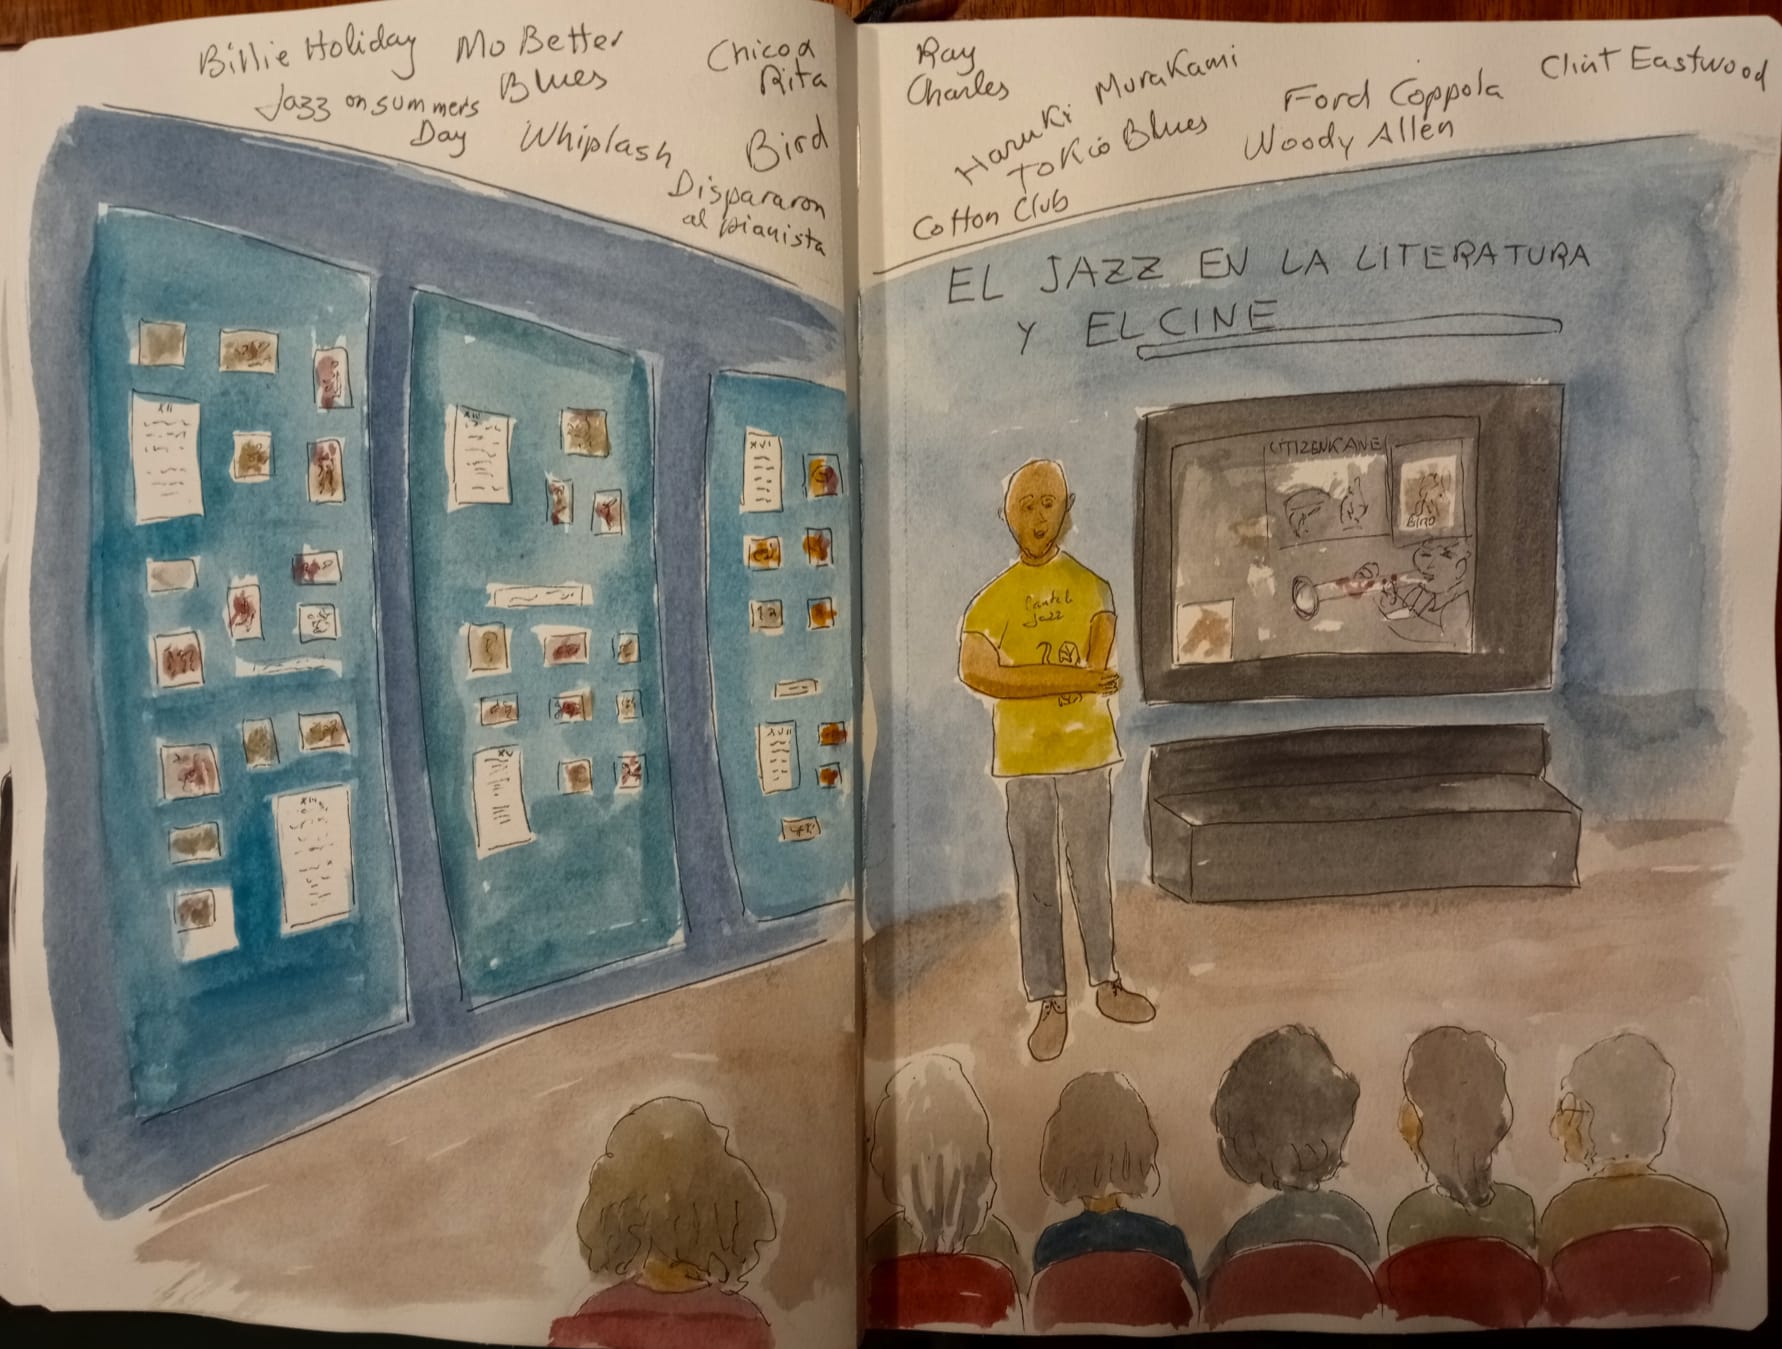 Billie Holiday
Jazz on summer's
Day
Mo Better
Blues
Whiplash
Chico a
Rita
Bird
Dispararon
al pianista
Ray
Charles
Haruki Murakami
Tokio Blues
Cotton Club
Ford Coppola
Woody Allen
Clint Eastwood
EL JAZZ EN LA LITERATURA
Y EL CINE
CITIZEN KANE
BIRD
Jazz
XII
XV
XVI
XVII